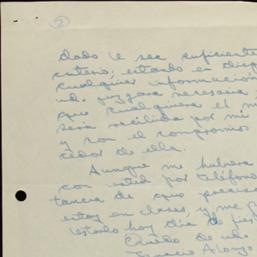 2
Dado le sea suficiente
entero; estando en disp
cualquier información
ud. juzgara necesaria
que cualquiera el m
será recibida por mi
y con el compromiso
cedor de ella.
Aunque me hubiera
con usted por teléfono
tancia de que precisa
estoy en clases, y me p
estado hoy día de fies
Quedo de ud.
Ignacio Alonso